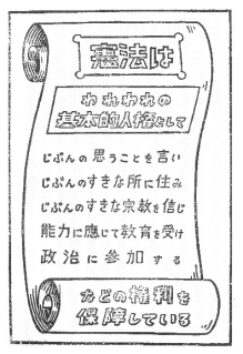 憲法は
われわれの
基本的人格として
じぶんの思うことを言い
じぶんのすきな所に住み
じぶんのすきな宗教を信じ
能力に應じて教育を受け
政治に参加する
などの権利を
保障している